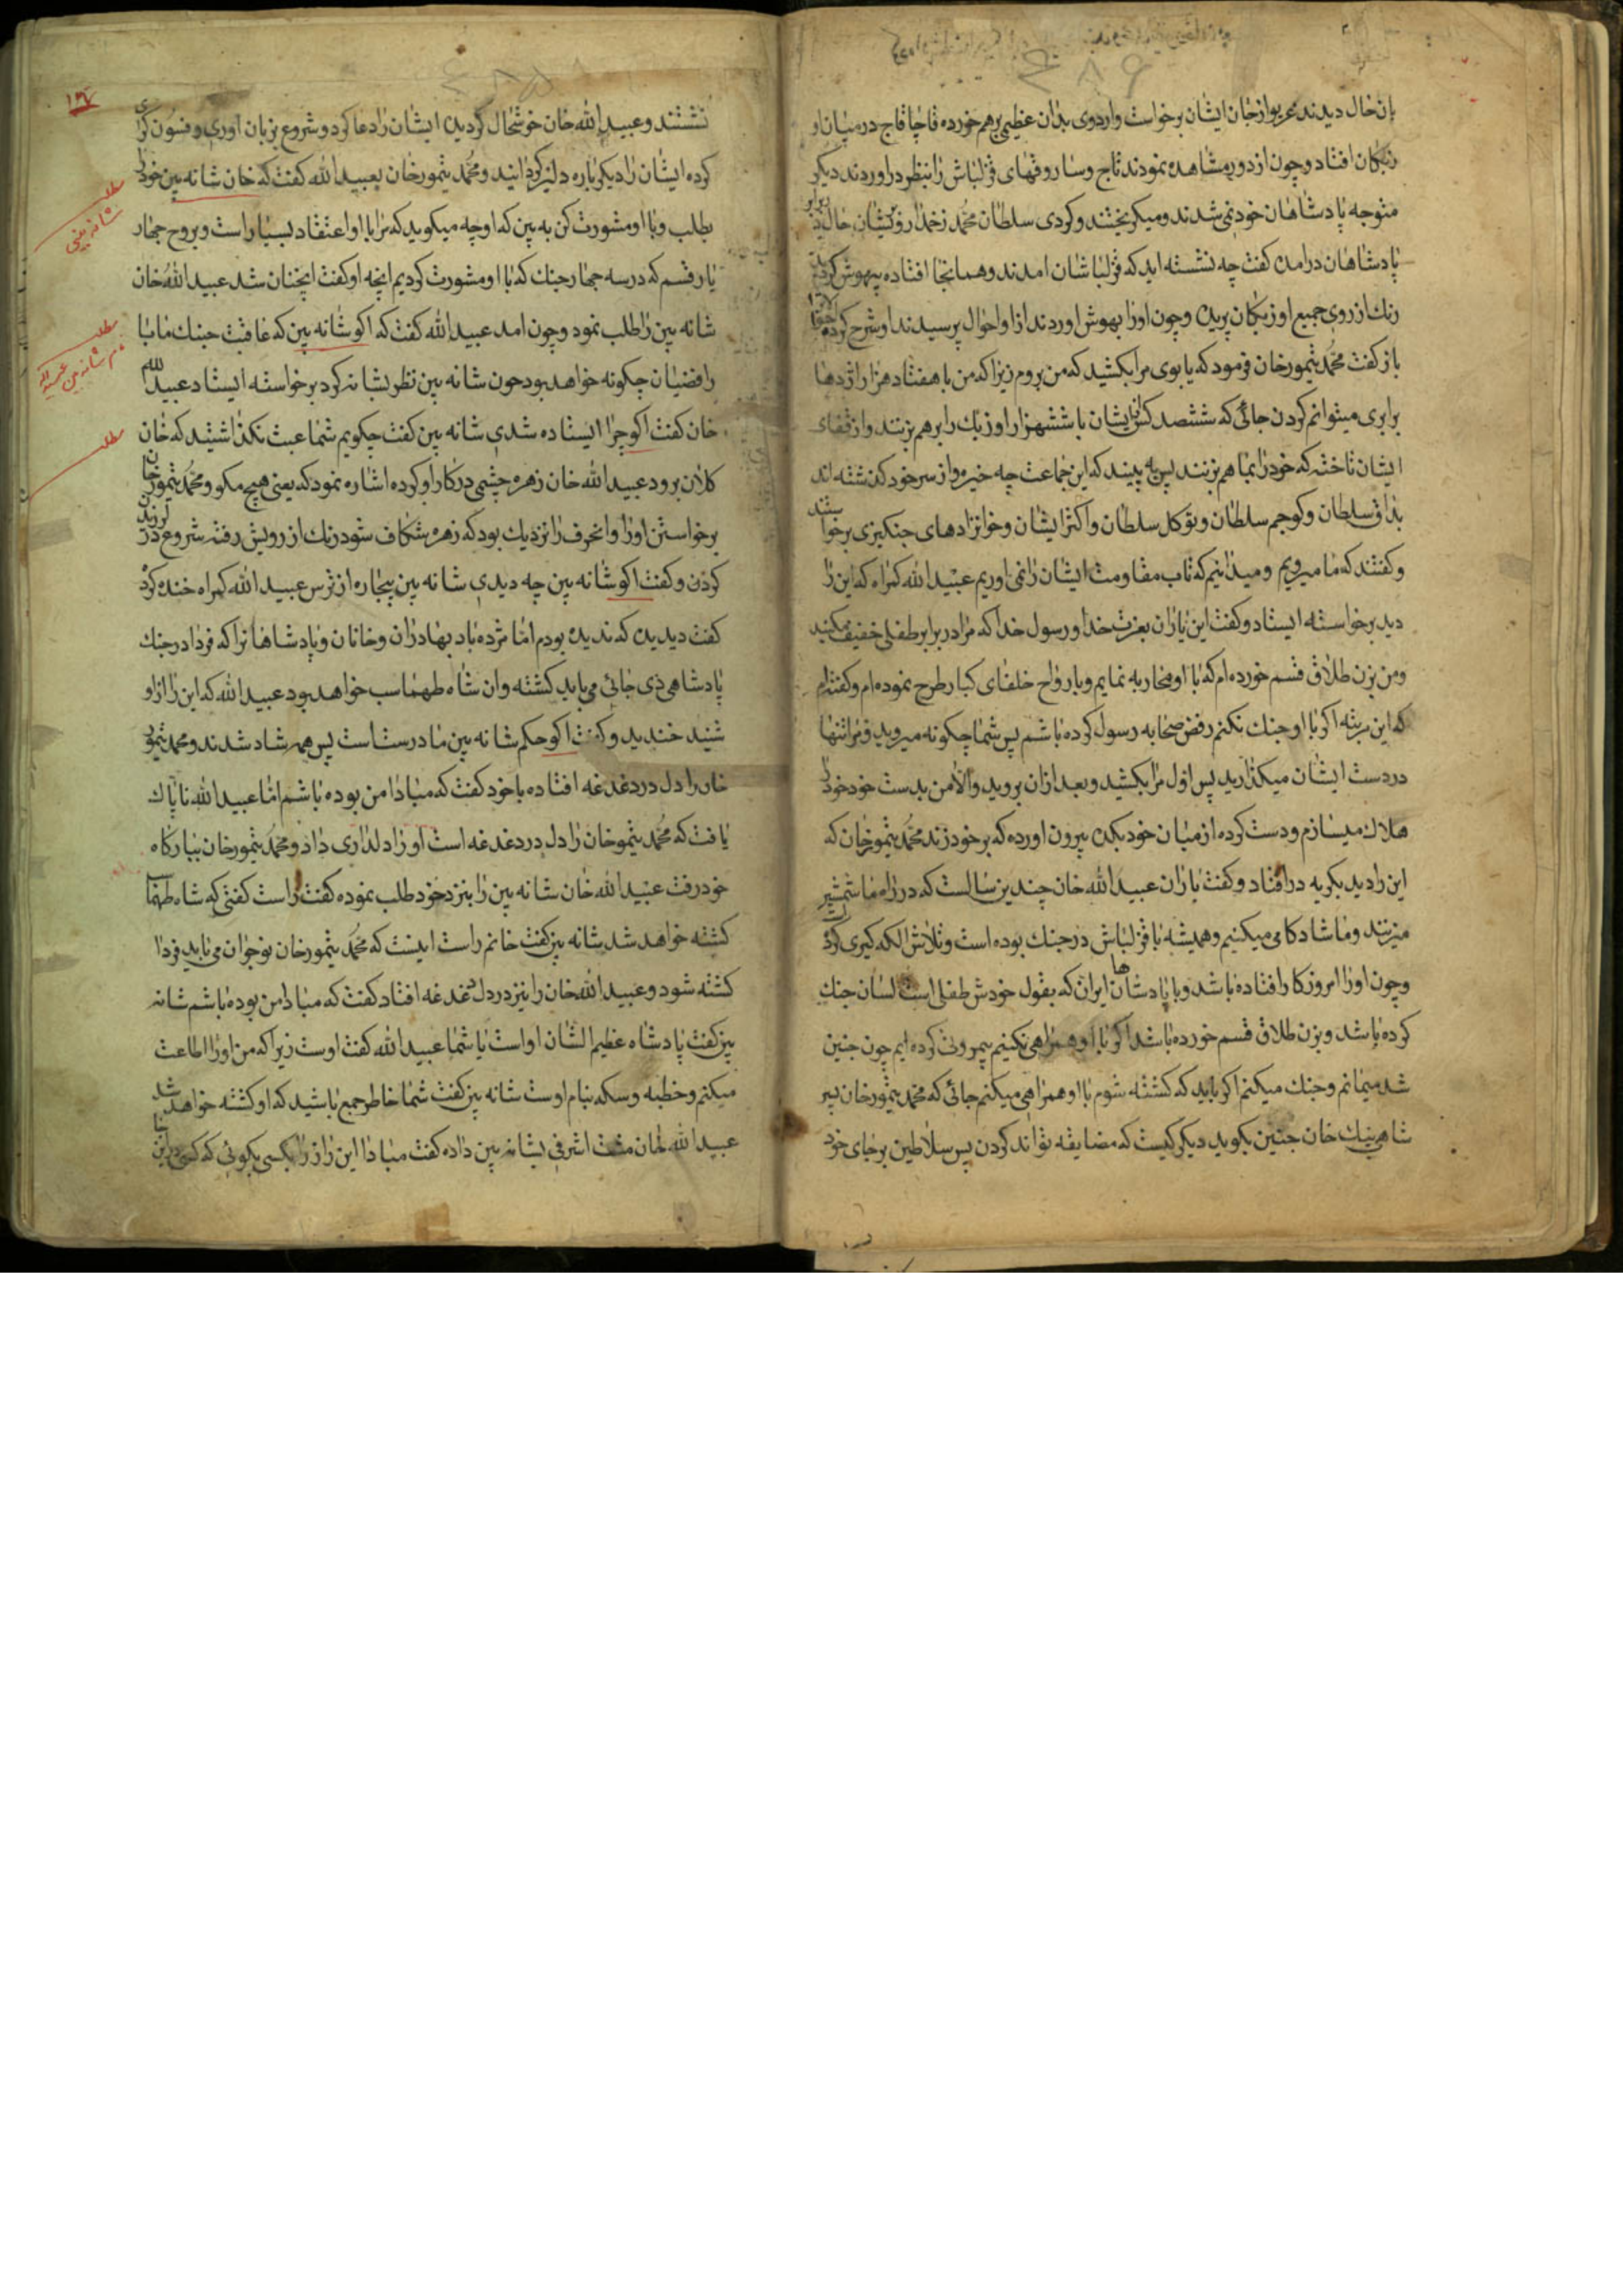 بان حال دیدند غریو از جان ایشان برخواست و اردوی بدان عظیمی برهم خورده قاچاقاج در میان او
زبکان افتاد و چون از دور مشاهده نمودند تاج و ساروقهای قزلباش را بنظر دراوردند دیکر
متوجه پادشاهان خود نمی شدند و میکریختند و کردی سلطان محمد زخمدار و پریشان حال در برابر
پادشاهان درامده کفت چه نشسته اید که قزلباشان امدند و همانجا افتاده بیهوش کردید
رنک از روی جمیع اوزبکان پریده و چون او را بهوش اوردند از او احوال پرسیدند او شرح کرده
باز کفت محمد تیمور خان فرمود که یابوی مرا بکشید که من بروم زیرا که من با هفتاد هزار اژدها
برابری میتوانم کردن جائی که ششصد کس ایشان با ششهزار اوزبک را برهم بزنند و از قفای
ایشان تاخته که خود را بما هم بزنند پس به بینید که این جماعت چه خیره و از سر خود کذشته اند
بداق سلطان و کوجم سلطان و توکل سلطان و اکثر ایشان و خوانزادهای جنکیزی برخواستند
و کفتند که ما میرویم و میدانیم که تاب مقاومت ایشان را نمی اوریم عبید الله کمراه که این را
دید برخواسته ایستاد و کفت این یاران بعزت خدا و رسول خدا که مرا در برابر طفلی خفیف مکنید
و من بزن طلاق قسم خورده ام که با او محاربه نمایم و با رواح خلفای کبار طرح نموده ام و کفته ام
که این مرتبه اکر با او جنک نکنم رفض صحابه رسول کرده باشم پس شما چکونه میروید و مرا تنها
در دست ایشان میکذارید پس اول مرا بکشید و بعد ازان بروید و الا من بدست خود خود را
هلاک میسازم و دست کرده از میان خود بکده بیرون اورده که بر خود زند محمد تیمور خان که
این را دید بکریه در افتاد و کفت یاران عبید الله خان چندین سالست که در راه ما شمشیر
میزنند و ما شادکامی میکنیم و همیشه با قزلباش در جنک بوده است و تلاش الکه کیری کرده است
و چون او را امروز کار افتاده باشد و با پادشاهان ایران که بقول خودش طفلی است لسان جنک
کرده باشد و بزن طلاق قسم خورده باشد اکر با او همراهی نکنیم بیمروتی کرده ایم چون چنین
شد میمانم و جنک میکنم اکر باید که کشته شوم با او همراهی میکنم جائی که محمد تیمور خان پسر
شاهی بیک خان چنین بکوید دیکر کیست که مضایقه تواند کردن پس سلاطین بر جای خود
۱۹۴
نشستند و عبید الله خان خوشحال کردیده ایشان را دعا کرد و شروع بزبان اوری و فسون کری
کرده ایشان را دیکر باره دلیر کردانید و محمد تیمور خان بعبید الله کفت که خان شانه بین خود را
بطلب و با او مشورت کن به بین که او چه میکوید که مرا با او اعتقاد بسیار است و بروح جهار
یار قسم که در سه جهار جنک که با او مشورت کردیم انچه او کفت انچنان شد عبید الله خان
شانه بین را طلب نمود و چون امد عبید الله کفت که اکو شانه بین که عاقبت جنک ما با
رافضیان چکونه خواهد بود چون شانه بین نظر بشانه کرد برخواسته ایستاد عبید الله
خان کفت اکو چرا ایستاده شدی شانه بین کفت چکویم شما عبث نکذاشتید که خان
کلان برود عبید الله خان زهره چشمی در کار او کرده اشاره نمود که یعنی هیچ مکو و محمد تیمور خان
برخواستن او را و انحرف را نزدیک بود که زهره شکاف شود رنک از رویش رفته شروع در لرزیدن
کردن و کفت اکو شانه بین چه دیدی شانه بین بیچاره از ترس عبید الله کمراه خنده کرد
کفت دیدیده که ندیده بودم اما مژده باد بهادران و خانان و پادشاهانرا که فردا در جنک
پادشاهی ذی جائی می باید کشته و ان شاه طهماسب خواهد بود عبید الله که این را از او
شنید خندید و کفت اکو حکم شانه بین ما درست است پس همه شاد شدند و محمد تیمور
خان را دل در دغدغه افتاده با خود کفت که مبادا من بوده باشم اما عبید الله ناپاک
یافت که محمد تیمور خان را دل در دغدغه است او را دلداری داد و محمد تیمور خان ببارکاه
خود رفت عبید الله خان شانه بین را بنزد خود طلب نموده کفت راست کفتی که شاه طهماسب
کشته خواهد شد شانه بین کفت خانم راست اینست که محمد تیمور خان نوجوان می باید فردا
کشته شود و عبید الله خان را نیز در دل دغدغه افتاد کفت که مبادا من بوده باشم شانه
بین کفت پادشاه عظیم الشان او است یا شما عبید الله کفت اوست زیرا که من او را اطاعت
میکنم و خطبه و سکه بنام اوست شانه بین کفت شما خاطر جمع باشید که او کشته خواهد شد
عبید الله خان مشت اشرفی بشانه بین داده کفت مبادا این راز را بکسی بکوئی که کسی
مطلب
شانه بینی
مطلب
مطلب